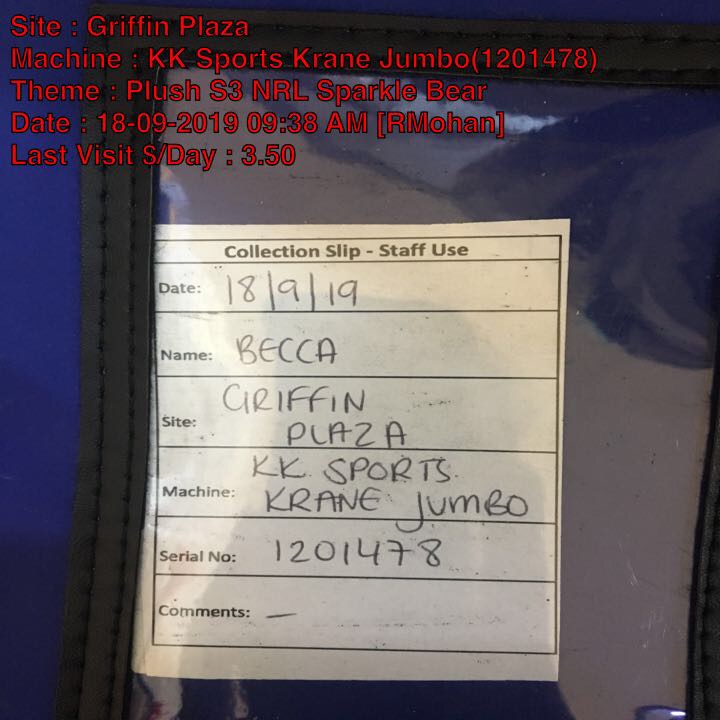 Site : Griffin Plaza
Machine : KK Sports Krane Jumbo(1201478)
Theme : Plush S3 NRL Sparkle Bear
Date : 18-09-2019 09:38 AM [RMohan]
Last Visit $/Day : 3.50
Collection Slip - Staff Use
Date: 18/9/19
Name: BECCA
Site: GRIFFIN
PLAZA
Machine: KK SPORTS
KRANE JUMBO
Serial No: 1201478
Comments: —